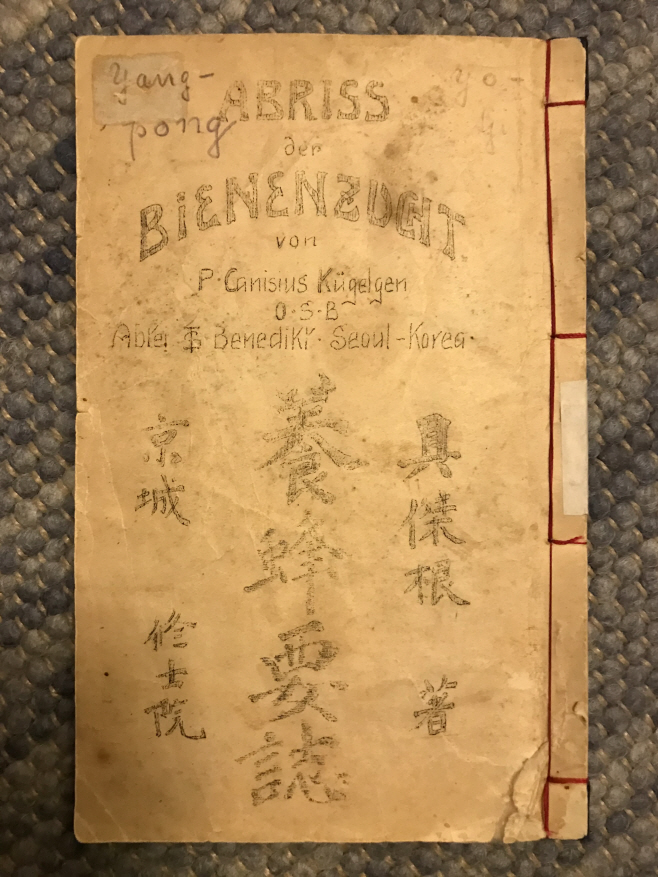 Yang-
pong
yo-
ABRISS
der
BIENENZUCHT
von
P·Canisius Kügelgen
O·S·B
Abtei St Benedikt· Seoul-Korea·
具傑根 著
養蜂要誌
京城 修士院